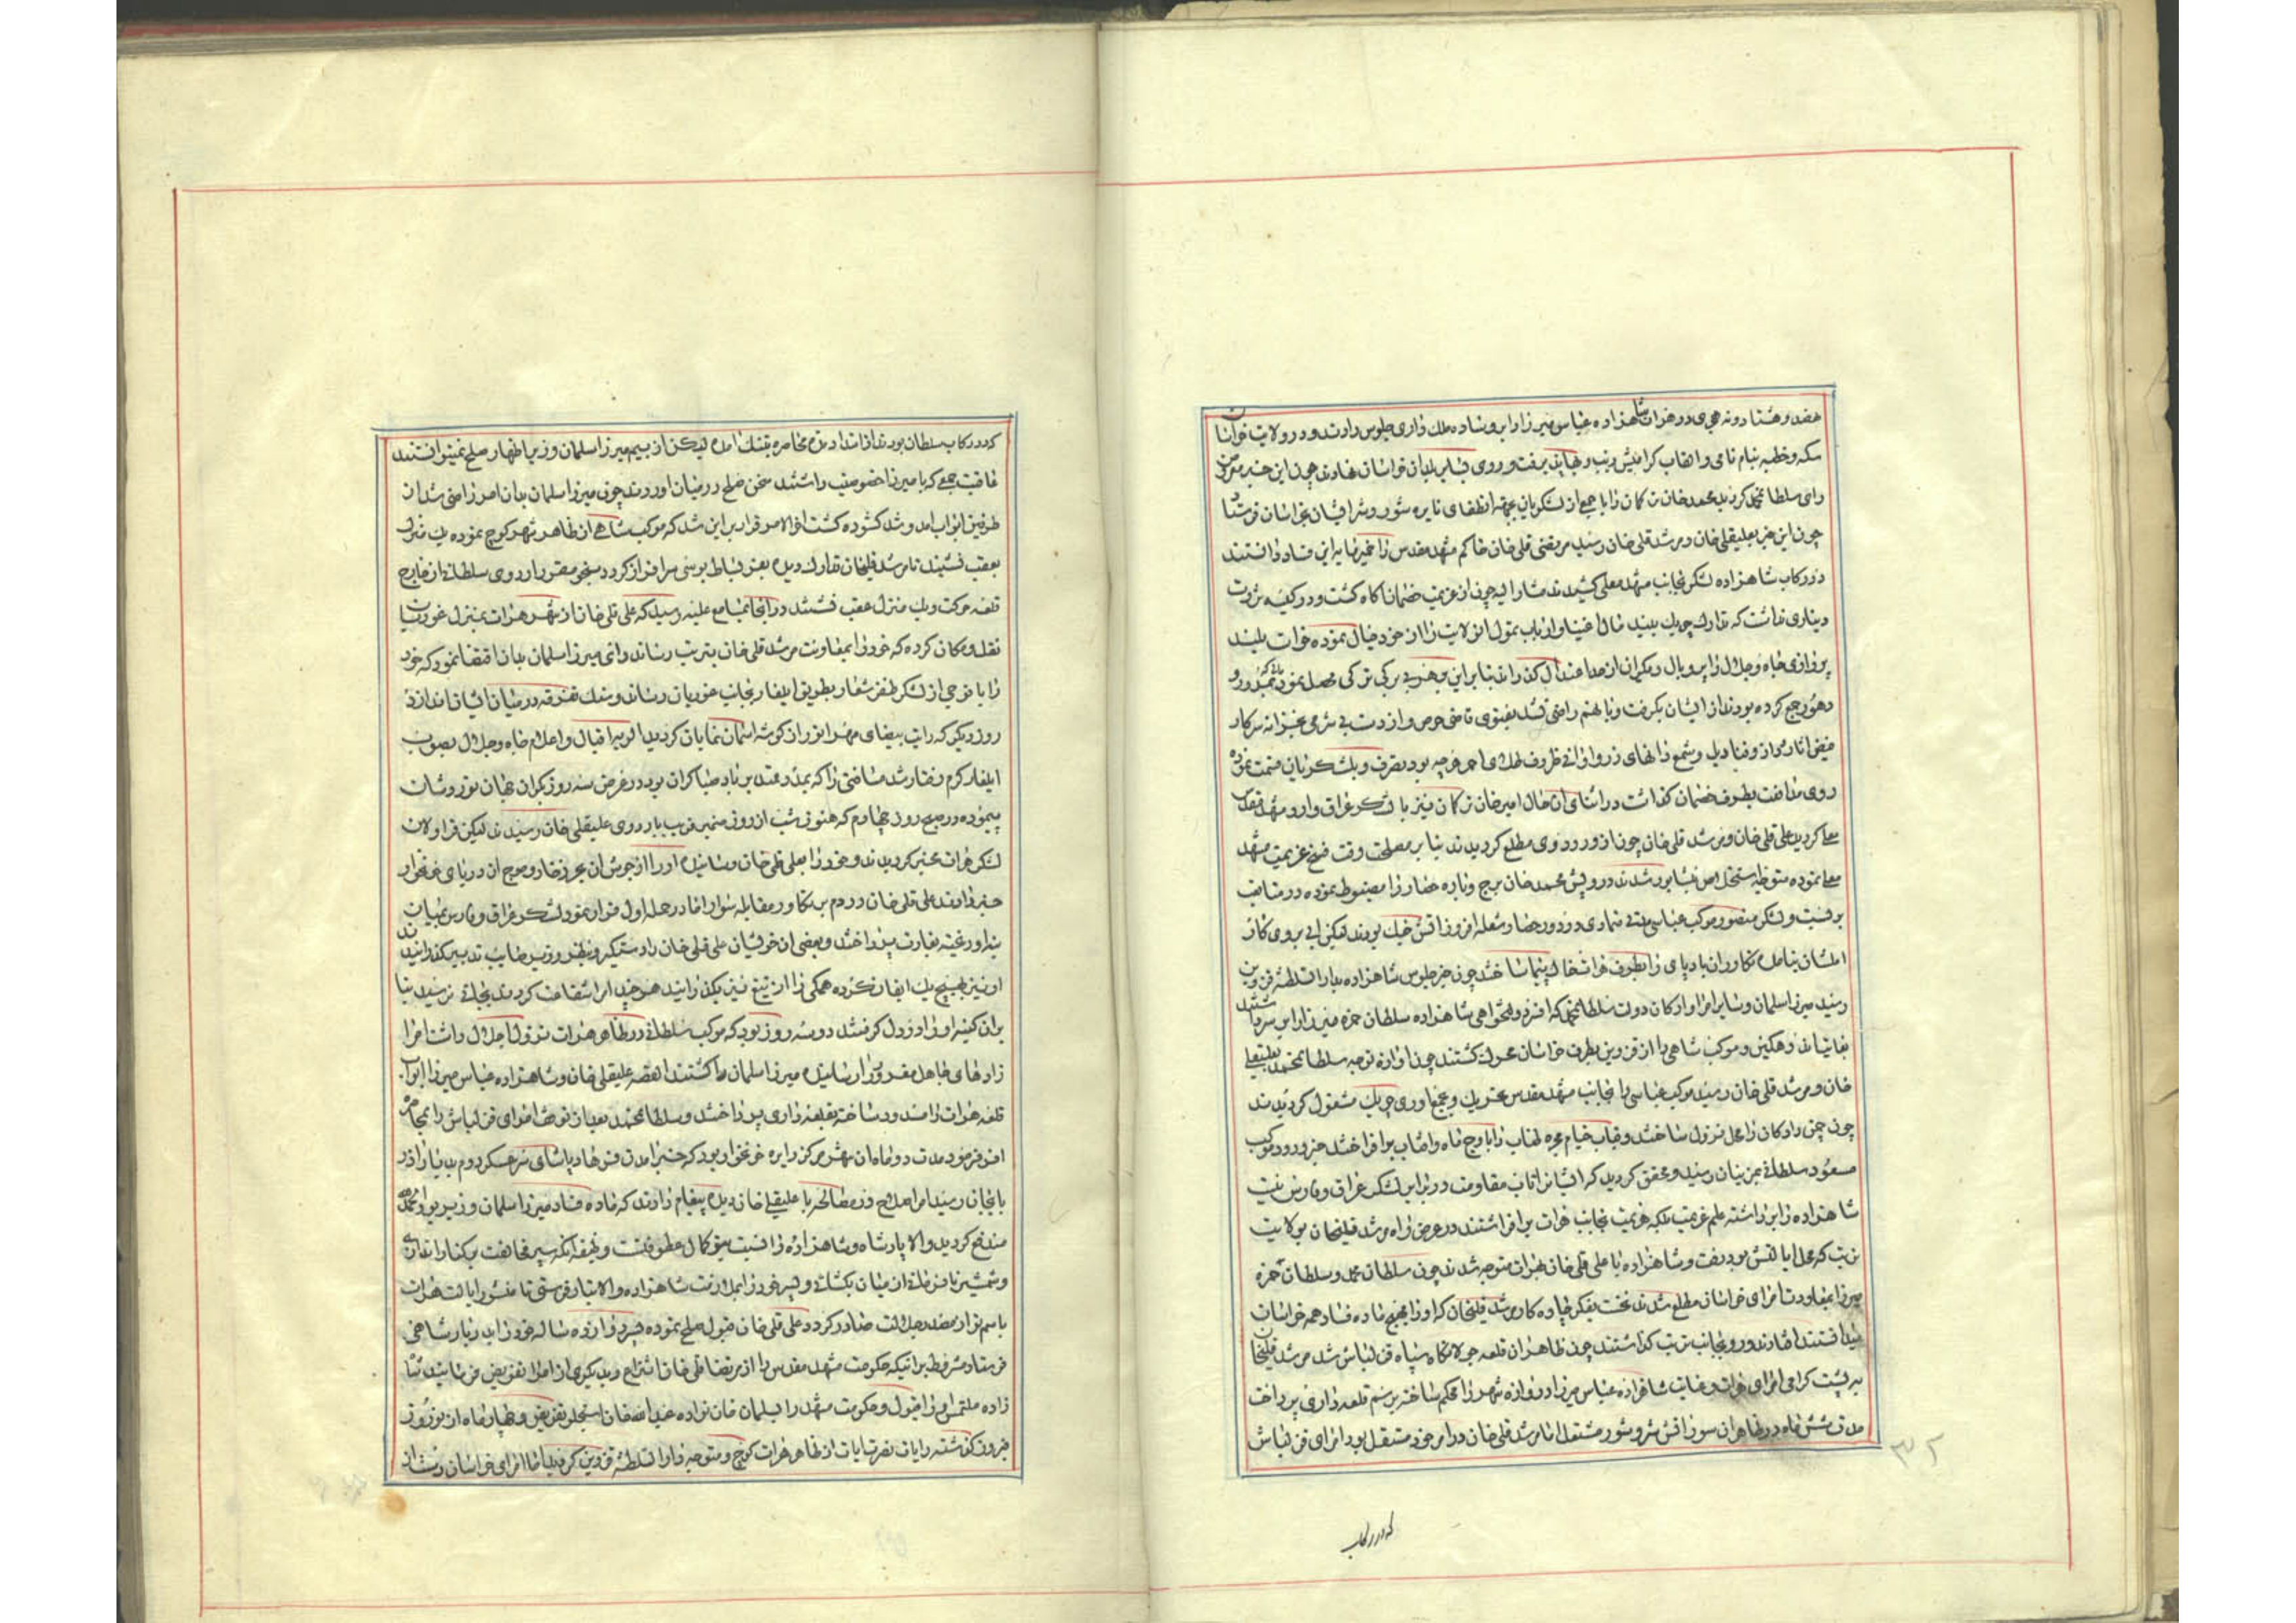 هفتصد و هشتاد و نه هجری در هرات شاهزاده عباس میرزا را بر وساده ملک داری جلوس دادند و در ولایت خراسان
سکه و خطبه بنام نامی و القاب کرامیش زیب و بها پذیرفت و روی بلدان خراسان نهادند چون این خبر معروض
رای سلطان محمد کردید محمد خان ترکمان را با جمعی از لشکریان بجهة انطفای نایره شور و شر ایشان بخراسان فرستاد
چون این خبر بعلیقلی خان و مرشد قلی خان رسید مرتضی قلی خان حاکم مشهد مقدس را خمیرمایه این فساد دانستند
در رکاب شاهزاده لشکر بجانب مشهد معلی کشیدند مشارالیه چون از عزیمت خصمان آکاه کشت و در کیسه ثروت
دیناری نداشت که تدارک چریک بیند مال اغنیا و ارباب تمول آن ولایت را از خود خیال نموده خواست بلند
پروازی جاه و جلال را پر و بال
دهور جمع کرده بودند از ایشان بکرفت و بآنهم راضی نشد بفتوی قاضی حرص و آز دست بی شرمی بخزانه سرکار
فیض آثار دراز و قنادیل و شمع دانهای زر و اوانی ظروف طلای احمر هرچه بود بتصرف و بلشکریان قسمت نموده
روی مدافعت بطرف خصمان کذاشت در اثنای آن حال امیر خان ترکمان نیز با لشکر عراق وارد مشهد مقدس
معلی کردید علی قلی خان و مرشد قلی خان چون از ورود وی مطلع کردیدند بنابر مصلحت وقت فسخ عزیمت مشهد
معلی نموده متوجه استخلاص نیشابور شدند درویش محمد خان برج و باره حصار را مضبوط نموده در متانت
بر نشست و لشکر منصور موکب عباسی مدتی متمادی در دور حصار شعله افروز آتش جنک بودند لیکن آبی بر روی کار
ایشان نیامده تکاوران بادپای را بطرف هرات خاک پیما ساختند چون خبر جلوس شاهزاده بدار السلطنه قزوین
رسید میرزا سلمان و سایر امرا و ارکان دولت سلطان محمد که افزون دولتخواهی شاهزاده سلطان حمزه میرزا را بر سر داشتند
بغایت اندوهکین و موکب شاهی را از قزوین بطرف خراسان محرک کشتند چون آوازه توجه سلطان محمد بعلیقلی
خان و مرشد قلی خان رسید موکب عباسی را بجانب مشهد مقدس تحریک و بجمع آوری چریک مشغول کردیدند
چون چمن رادکان را محل نزول ساختند و قباب خیام مجره طناب را باوج ماه و آفتاب برافراختند خبر ورود موکب
مسعود سلطانی بمزینان رسید و محقق کردید که ایشانرا تاب مقاومت در برابر لشکر عراق و فارس نیست
شاهزاده را برداشته علم عزیمت بلکه هزیمت بجانب هرات برافراشتند در عرض راه مرشد قلیخان بولایت
تربت که محل ایالتش بود رفت و شاهزاده با علی قلی خان بهرات متوجه شدند چون سلطان محمد و سلطان حمزه
میرزا بمعاودت امرای خراسان مطلع شدند نخست بفکر چاره کار مرشد قلیخان که او را مهیج ماده فساد همه خراسان
میدانستند افتادند و رو بجانب تربت کذاشتند چون ظاهر آن قلعه جولانکاه سپاه قزلباش شد مرشد قلیخان
به پشت کرمی امرای هرات و عنایت شاهزاده عباس میرزا دروازه شهر را محکم ساخته برسم قلعه داری پرداخت
مدت شش ماه در ظاهر آن سور آتش شر و شور مشتعل اما مرشد قلی خان در امر خود مستقل بود امرای قزلباش
که در رکاب
۳۲
که در رکاب سلطان بودند از امتداد مدت محاصره بتنک آمده لیکن از بیم میرزا سلمان وزیر اظهار صلح نمیتوانستند
عاقبت جمعی که با میرزا خصوصیت داشتند سخن صلح در میان آوردند چون میرزا سلمان بدان امر راضی شد از
طرفین ابواب آمد و شد کشوده کشت آخر الامر قرار بر این شد که موکب شاهی از ظاهر شهر کوچ نموده یک منزل
بعقب نشیند تا مرشد قلیخان تدارک دیده بعز بساط بوسی سرافراز کردد بنحو مقرر اردوی سلطانی از خارج
قلعه حرکت و یک منزل عقب نشستند در آنجا بمسامع علیه رسید که علی قلی خان از شهر هرات بمنزل غوریان
نقل و مکان کرده که خود را بمعاونت مرشد قلی خان بتربت رساند رای میرزا سلمان بدان اقتضا نمود که خود
را با فوجی از لشکر ظفر شعار بطریق ایلغار بجانب غوریان رساند و سنک تفرقه در میان ایشان اندازد
روز دیکر که رایت بیضای مهر انور از کوشه آسمان نمایان کردید لوای اقبال و اعلام جاه و جلال بصوب
ایلغار کرم رفتار شد مسافتی را که بعد و عقد بر باد صبا کران بود در عرض سه روز یکران جهان نورد شان
پیموده در صبح روز چهارم که هنوز شب از روز متمیز قریب باردوی علیقلی خان رسیدند لیکن قراولان
لشکر هرات مخبر کردیدند و خود را بعلی قلی خان رسانیده او را از جوش آن بحر ذخار و موج آن دریای خونخوار
خبر دادند علی قلی خان در دم بر تکاور مقابله سوار اما در حمله اول فرار نمود لشکر عراق و فارس بمیان
بعضی از خویشان علی قلی خان را دستکیر و بنظر وزیر صایب تدبیر کذرانیدند
او نیز بهیچ یک ابقا نکرده همکی را از تیغ تیز بکذرانید هر چند امرا شفاعت کردند بجائی نرسید بنا
بر آن کینه او را در دل کرفتند دو سه روز بود که موکب سلطانی در ظاهر هرات نزول اجلال داشت امرا
زادهای جاهل مغرور میرزا سلمان را کشتند القصه علیقلی خان و شاهزاده عباس میرزا ابواب
قلعه هرات را مسدود ساخته بقلعه داری پرداختند و سلطان محمد بعد از آن امرای قزلباش را بمحاصره
افسر فرمود مدت دو ماه آن شهر مرکز دایره خونخوار بود که خبر آمدن فرهاد پاشای سرعسکر روم بدیار آذر
بایجان رسید امرا صلاح در مصالحه با علیقلی خان دیده پیغام دادند که ماده فساد میرزا سلمان وزیر بود بحمدالله
مندفع کردید والا پادشاه و شاهزاده را نسبت بتو کمال عطوفتست وظیفه آنکه سپر مخالفت بر کنار اندازی
و شمشیر نافرمانی از میان بکشائی و پسر خود را بملازمت شاهزاده والاتبار فرستی تا منشور ایالت هرات
باسم تو از مصدر جلالت صادر کردد علی قلی خان قبول صلح نموده پسر دوازده ساله خود را بدربار شاهی
فرستاد مشروط بر اینکه حکومت مشهد مقدس را از مرتضا قلی خان انتزاع و بدیکری از امرا تفویض فرمایند شاه
زاده ملتمس او را قبول و حکومت مشهد را بسلمان خان نواده عبدالله خان استجلو تفویض و چهار ماه از نوروز
فیروز کذشته رایات نصرت آیات از ظاهر هرات کوچ و متوجه دار السلطنه قزوین کردید اما امرای خراسان دست از